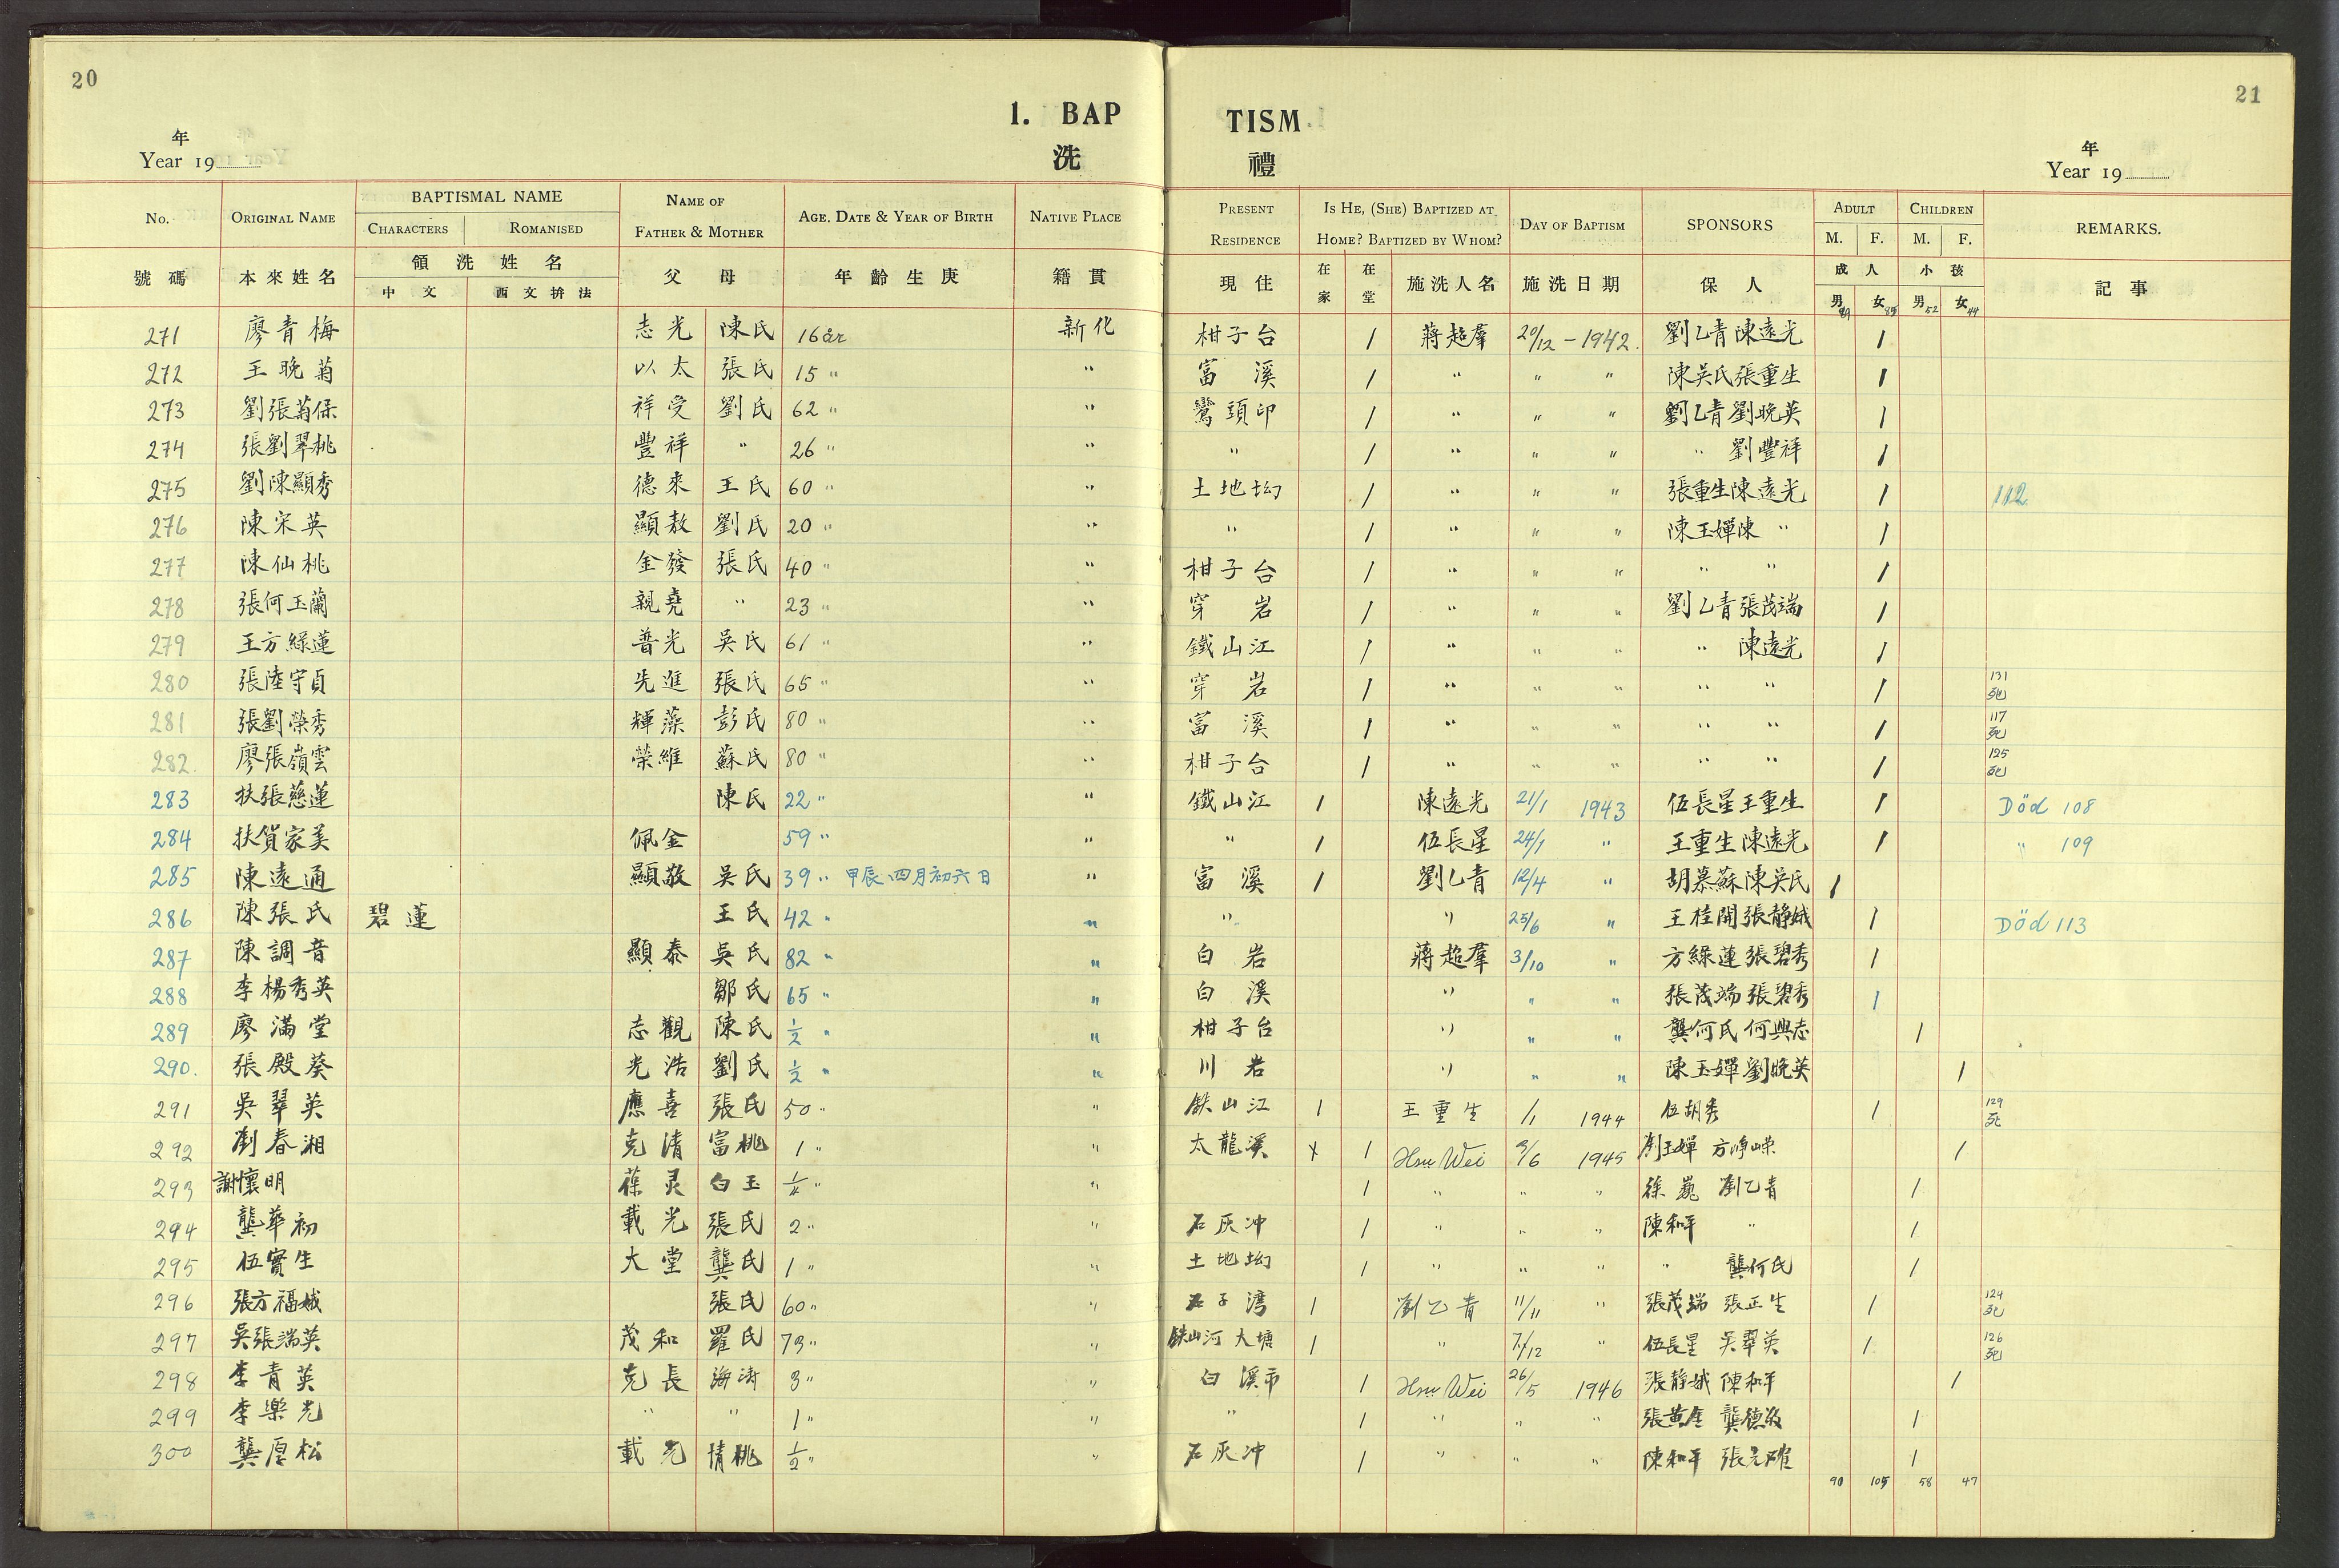 20
21
1. BAP
TISM
洗
禮
年
Year 19
年
Year 19
No. ORIGINAL NAME BAPTISMAL NAME NAME OF FATHER & MOTHER AGE. DATE & YEAR OF BIRTH NATIVE PLACE PRESENT RESIDENCE IS HE, (SHE) BAPTIZED AT HOME? BAPTIZED BY WHOM? DAY OF BAPTISM SPONSORS ADULT CHILDREN REMARKS.
CHARACTERS ROMANISED M. F. M. F.
號碼 本來姓名 領洗姓名 父母 年齡生庚 籍貫 現住 在家 在堂 施洗人名 施洗日期 保人 成人 小孩 記事
中文 西文拚法 男 女 男 女
89 85 52 44
271 廖青梅 志光 陳氏 16 år 新化 柑子台 1 蔣超羣 20/12 - 1942. 劉乙青 陳遠光 1
272 王晚菊 以太 張氏 15 " " 富溪 1 " " " 陳吳氏 張重生 1
273 劉張菊保 祥受 劉氏 62 " " 鸞頭印 1 " " " 劉乙青 劉晚英 1
274 張劉翠桃 豐祥 " 26 " " " 1 " " " " 劉豐祥 1
275 劉陳顯秀 德來 王氏 60 " " 土地坳 1 " " " 張重生 陳遠光 1 112
276 陳宋英 顯敖 劉氏 20 " " " 1 " " " 陳玉嬋 陳 " 1
277 陳仙桃 金發 張氏 40 " " 柑子台 1 " " " " " 1
278 張何玉蘭 親堯 " 23 " " 穿岩 1 " " " 劉乙青 張茂端 1
279 王方綠蓮 普光 吳氏 61 " " 鐵山江 1 " " " " 陳遠光 1
280 張陸守貞 先進 張氏 65 " " 穿岩 1 " " " " " 1 131 死
281 張劉榮秀 輝藻 彭氏 80 " " 富溪 1 " " " " " 1 117 死
282. 廖張嶺雲 榮維 蘇氏 80 " " 柑子台 1 " " " " " 1 125 死
283 扶張慈蓮 陳氏 22 " " 鐵山江 1 陳遠光 21/1 1943 伍長星 王重生 1 Död 108
284 扶貨家美 佩金 59 " " " 1 伍長星 24/1 " 王重生 陳遠光 1 " 109
285 陳遠通 顯敬 吳氏 39 " 甲辰四月初六日 " 富溪 1 劉乙青 12/4 " 胡慕蘇 陳吳氏 1
286 陳張氏 碧蓮 王氏 42 " " " " 25/6 " 王桂開 張靜娥 1 Död 113
287 陳調音 顯泰 吳氏 82 " " 白岩 蔣超羣 3/10 " 方綠蓮 張碧秀 1
288 李楊秀英 鄒氏 65 " " 白溪 " " " 張茂端 張碧秀 1
289 廖滿堂 志觀 陳氏 1/2 " " 柑子台 " " " 龔何氏 何興志 1
290. 張殿葵 光浩 劉氏 1/2 " " 川岩 " " " 陳玉嬋 劉晚英 1
291 吳翠英 應喜 張氏 50 " " 鉄山江 1 王重生 1/1 1944 伍胡秀 1 129 死
292 劉春湘 克清 富桃 1 " " 太龍溪 x 1 Hsu Wei 3/6 1945 劉玉嬋 1
293 謝懷明 葆灵 白玉 " " 1 " " " 徐巍 劉乙青 1
294 龔華初 載光 張氏 2 " " 石灰冲 1 " " " 陳和平 " 1
295 伍實生 大堂 龔氏 1 " " 土地坳 1 " " " " 龔何氏 1
296 張方福娥 張氏 60 " " 石子湾 1 劉乙青 11/11 " 張茂端 張正生 1 124 死
297 吳張端英 茂和 羅氏 73 " " 鉄山河大塘 1 " 7/12 " 伍長星 吳翠英 1 126 死
298 李青英 克長 海涛 3 " " 白溪市 1 Hsu Wei 26/5 1946 張靜娥 陳和平 1
299 李樂光 " " 1 " " " 1 " " " 張黃金 1
300 龔厚松 載光 情桃 1/2 " " 石灰冲 1 " " " 陳和平 1
90 105 58 47